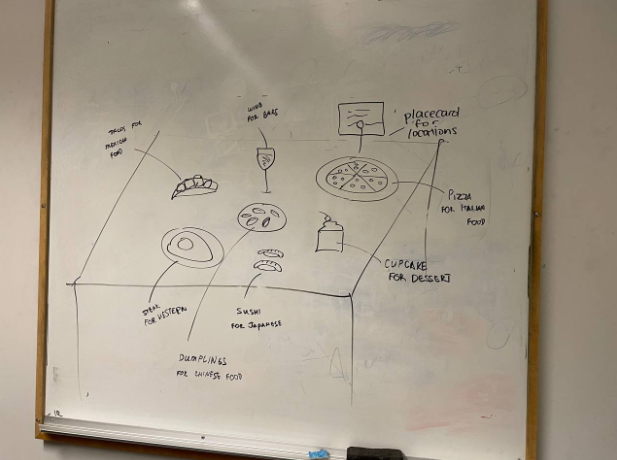 TACOS FOR
MEXICAN
FOOD
WINE
FOR BARS
placecard
for
locations
PIZZA
FOR ITALIAN
FOOD
CUPCAKE
FOR DESSERT
STEAK
FOR WESTERN
SUSHI
FOR JAPANESE
DUMPLINGS
FOR CHINESE FOOD